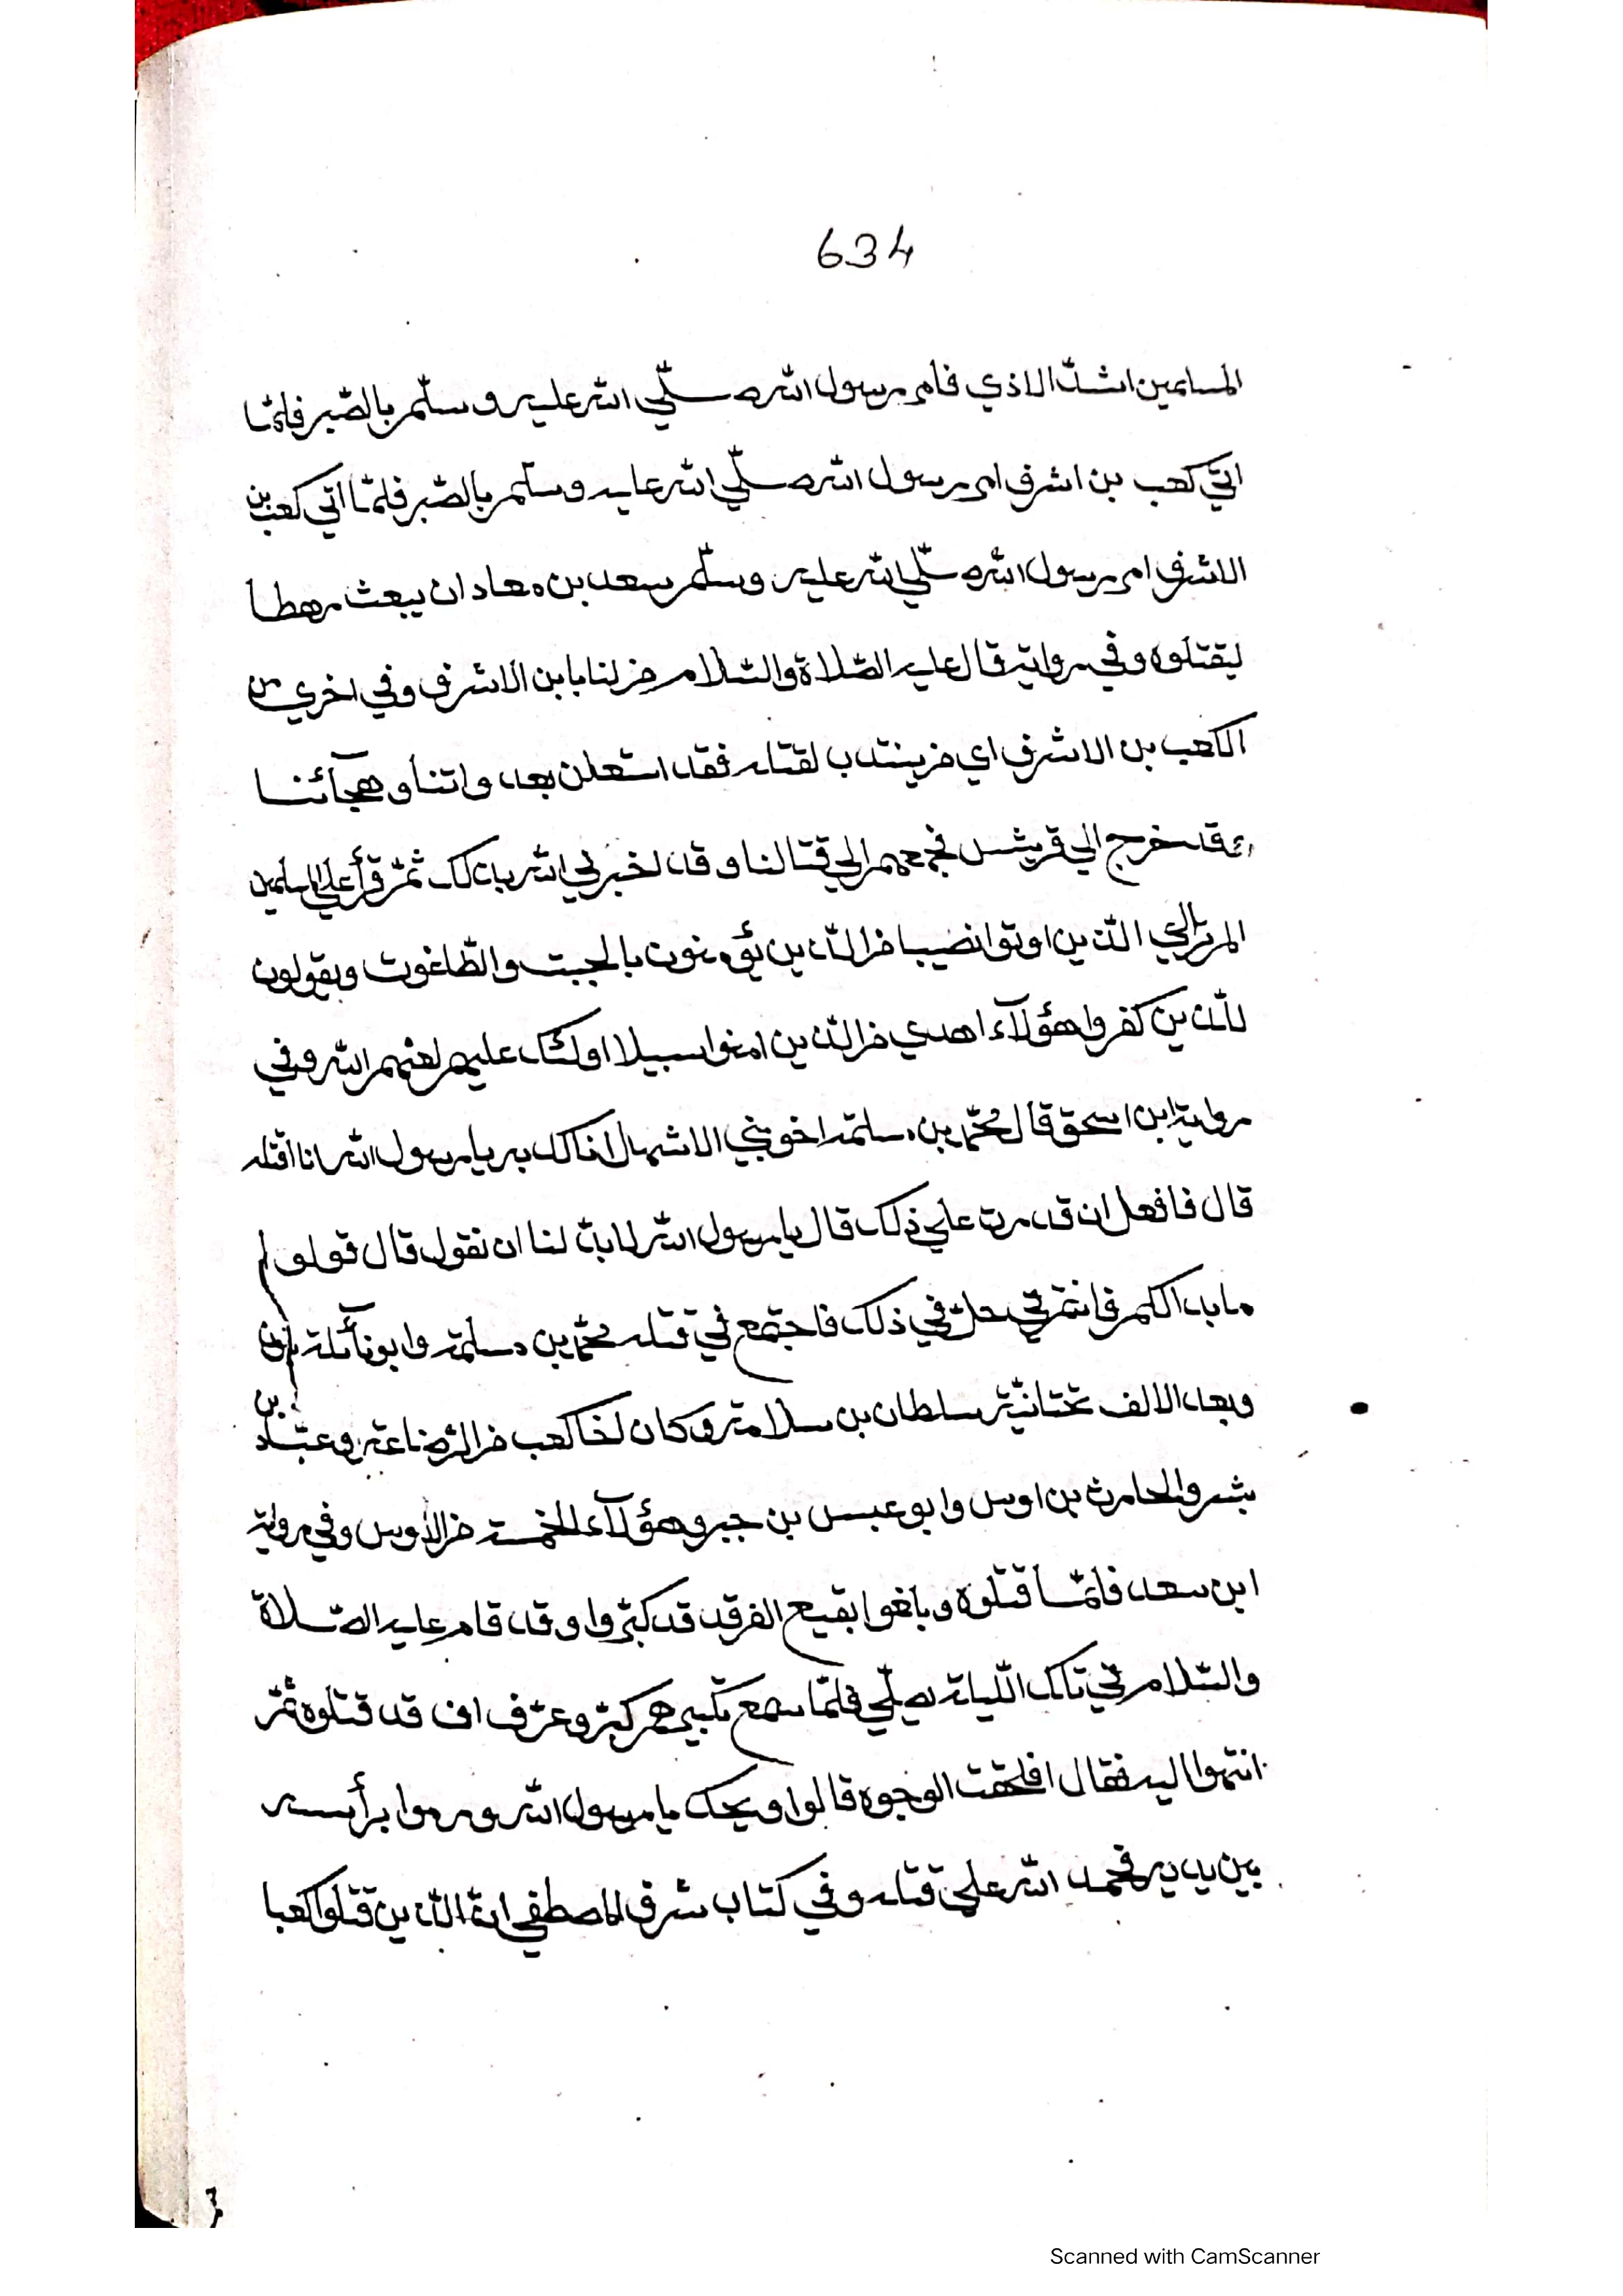 634
المسلمين اشدّ الاذي فامر رسول الله صلّي الله عليه وسلّم بالصّبر فلمّا
اتي كعب بن اشرف امر رسول الله صلّي الله عليه وسلّم بالصّبر فلمّا اتي كعب بن
الاشرف امر رسول الله صلّي الله عليه وسلّم سعد بن معاد ان يبعث رهطا
ليقتلوه وفي رواية قال عليه الصّلاة والسّلام من لنا بابن الأشرف وفي اخري من
الكعب بن الاشرف اي من ينتدب لقتله فقد استعلن بعداوتنا وهجآئنا
وقد خرج الي قريش فجمعهم الي قتالنا وقد اخبرني الله بذلك ثمّ قرأ علي المسلمين
الم تر الي الّذين اوتوا نصيبا من الّذين يؤمنون بالجبت والطّاغوت ويقولون
للّذين كفروا هؤلآء اهدي من الّذين امنوا سبيلا اولئك عليهم لعنهم الله وفي
رواية ابن اسحق قال محّمد بن مسلمة اخو بني الاشهال انا لك به يا رسول الله انا اقتله
قال فافعل ان قدرت علي ذلك قال يا رسول الله لا بدّ لنا ان نقول قال قولوا
ما بدا لكم فانتم في حلّ في ذلك فاجتمع في قتله محمّد بن مسلمة وابو نآئلة بنون
وبعد الالف تحتانيّة سلطان بن سلامة وكان اخا كعب من الرّضاعة وعبّاد بن
بشر والحارث بن اوس وابو عبس بن جبر وهؤلآء الخمسة من الأوس وفي رواية
ابن سعد فلمّا قتلوه وبلغوا بقيع الغرقد قد كبّروا وقد قام عليه الصّلاة
والسّلام في تلك اللّيلة يصلّي فلمّا سمع تكبيرهم كبّر وعرّف ان قد قتلوه ثمّ
انتهوا اليه فقال افلحت الوجوه قالوا ويحك يا رسول الله ورموا برأسه
بين يديه فحمد الله علي قتله وفي كتاب شرف المصطفي انّ الّذين قتلوا كعبا
Scanned with CamScanner